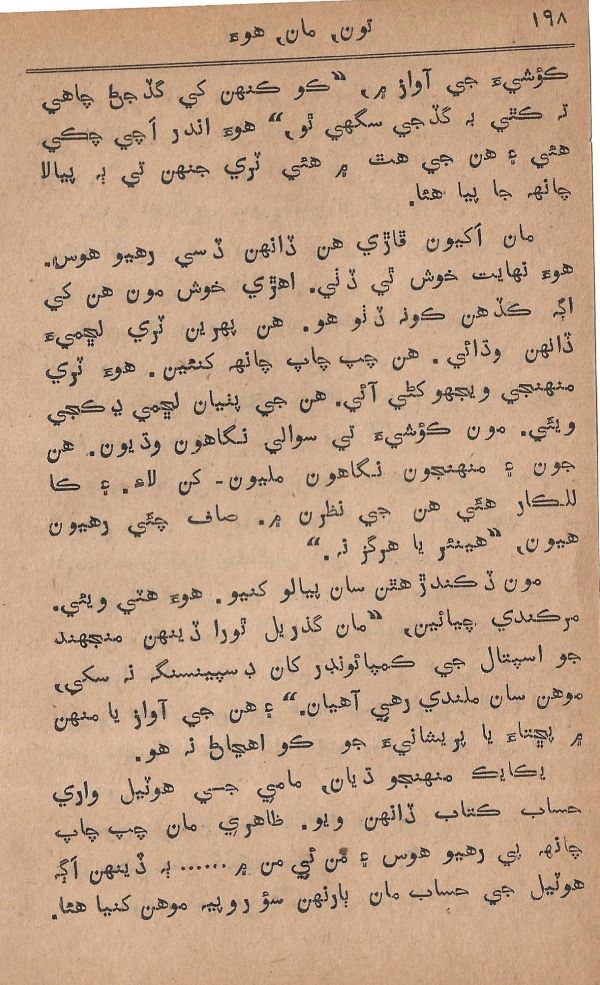 ۱۹۸
تون، مان، هوءَ
ڪؤشيءَ جي آواز ۾، ”ڪو ڪنهن کي گڏجڻ چاهي
ته ڪٿي به گڏجي سگهي ٿو،“ هوءَ اندر اچي چڪي
هئي ۽ هن جي هٿ ۾ هئي ٽري جنهن تي ٻه پيالا
چانهه جا پيا هئا.
مان اکيون ڦاڙي هن ڏانهن ڏسي رهيو هوس.
هوءَ نهايت خوش ٿي ڏٺي. اهڙي خوش مون هن کي
اڳ ڪڏهن ڪونه ڏٺو هو. هن پهرين ٽري لڇميءَ
ڏانهن وڌائي. هن چپ چاپ چانهه کنئين. هوءَ ٽري
منهنجي ويجهو کڻي آئي. هن جي پٺيان لڇمي ڍڪجي
ويئي. مون ڪؤشيءَ تي سوالي نگاهون وڌيون. هن
جون ۽ منهنجون نگاهون مليون- کن لاءِ. ۽ ڪا
للڪار هئي هن جي نظرن ۾. صاف چئي رهيون
هيون، ”هينئر يا هرگز نه.“
مون ڏڪندڙ هٿن سان پيالو کنيو. هوءَ هٽي ويئي.
مرڪندي چيائين، ”مان گذريل ٿورا ڏينهن منجهند
جو اسپتال جي ڪمپائونڊر کان ڊسپينسنگ نه سکي،
موهن سان ملندي رهي آهيان.“ ۽ هن جي آواز يا منهن
۾ پڇتاءَ يا پريشانيءَ جو ڪو اهڃاڻ نه هو.
يڪايڪ منهنجو ڌيان، مامي جي هوٽيل واري
حساب ڪتاب ڏانهن ويو. ظاهري مان چپ چاپ
چانهه پي رهيو هوس ۽ مَن ئي من ۾...... ٻه ڏينهن اڳ
هوٽيل جي حساب مان ٻارنهن سؤ روپيه موهن کنيا هئا.